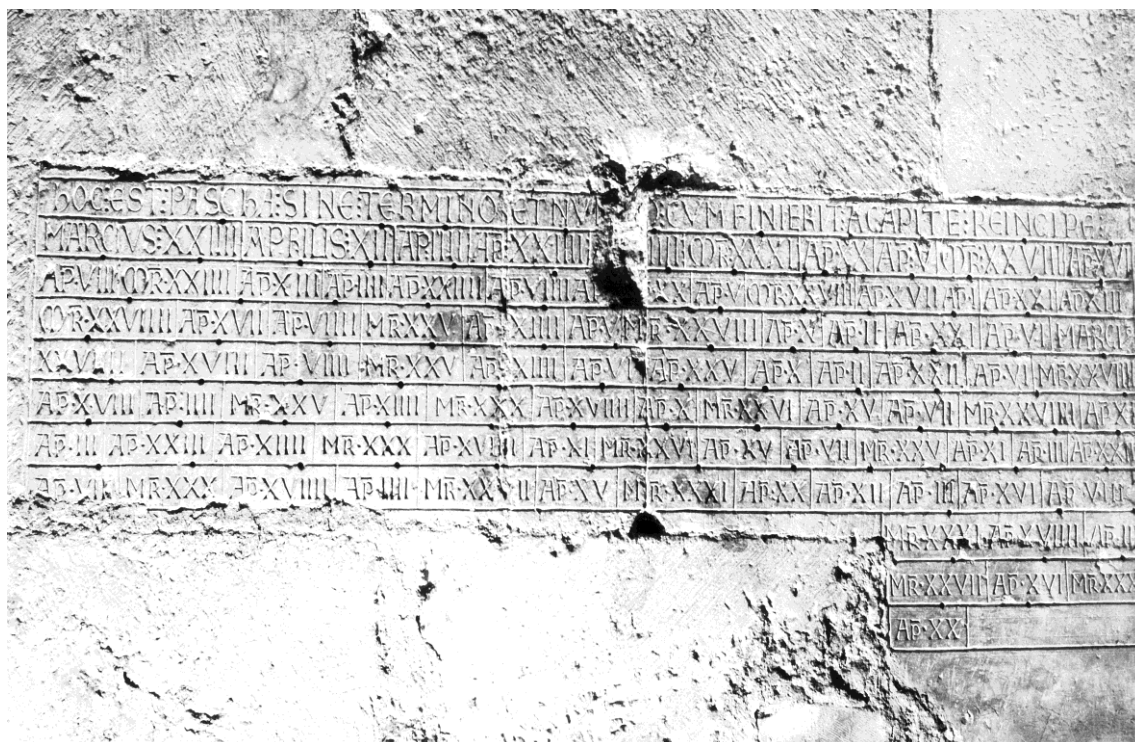 HOC:EST:PASCHA:SINE:TERMINO:ET NV CVM FINIERIT A CAPITE:REINCIPE:
MARCIVS:XXIIII APRILIS:XII AP·IIII AP·XXIIII IIII MR·XXXI AP·XX AP·V MR·XXVIII AP·XVI
AP·VIII MR·XXIIII AP·XIII AP·IIII AP·XXIIII AP·VIII XX AP·V MR·XXVIII AP·XVII AP·I AP·XXI AP·XIII
MR·XXVIIII AP·XVII AP·VIIII MR·XXV AP·XIIII AP·V MR·XXVIII AP·X AP·II AP·XXI AP·VI MARCIV
XXVIIII AP·XVIII AP·VIIII MR·XXV AP·XIIII AP·VI AP·XXV AP·X AP·II AP·XXII AP·VI MR·XXVIII
AP·XVIII AP·IIII MR·XXV AP·XIIII MR·XXX AP·XVIIII AP·X MR·XXVI AP·XV AP·VII MR·XXVIIII AP·XI
AP·III AP·XXIII AP·XIIII MR·XXX AP·XVIII AP·XI MR·XXVI AP·XV AP·VII MR·XXV AP·XI AP·III AP·XXI
AP·VII MR·XXX AP·XVIIII AP·IIII MR·XXVII AP·XV MR·XXXI AP·XX AP·XII AP·III AP·XVI AP·VIII
MR·XXXI AP·XVIIII AP·II
MR·XXVII AP·XVI MR·XXX
AP·XX